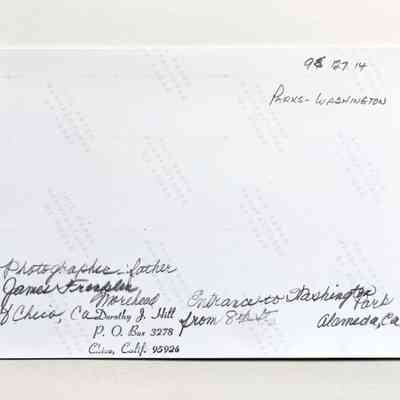 98 127 14
PARKS - WASHINGTON
Photographer - father
James Franklin
Morehead
of Chico, Ca.
Dorothy J. Hill
P. O. Box 3278
Chico, Calif. 95926
Entrance to Washington
Park
from 8th St.
Alameda, Ca